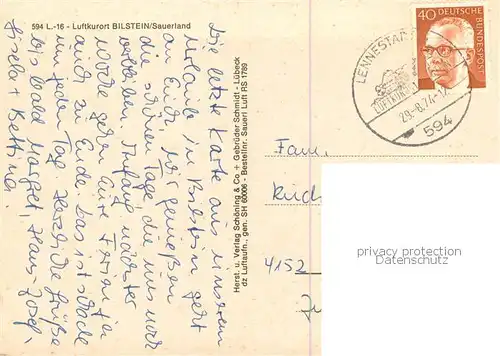 594 L.-16 - Luftkurort BILSTEIN/Sauerland
Die letzte Karte aus unserem
Urlaub in Bilstein geht
an Euch. Wir genießen
die schönen Tage die uns noch
verbleiben. Anfang nächster
Woche gehen Eure Ferien ja
auch zu Ende, das ist schade
um jeden Tag. Herzliche Grüße
bis bald Margret, Hans-Josef,
Gisela + Bettina.
Herst. u. Verlag Schöning & Co + Gebrüder Schmidt - Lübeck
dz Luftaufn., gen. SH 60006 - Bestellnr. Sauerl Luft RS 1789
40 DEUTSCHE BUNDESPOST
LENNESTADT
LUFTKURORT
29.-8.74-17
594
Fam.
4152
privacy protection
watermark